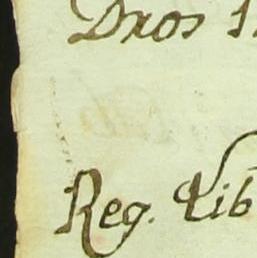 Dros
Reg. Lib